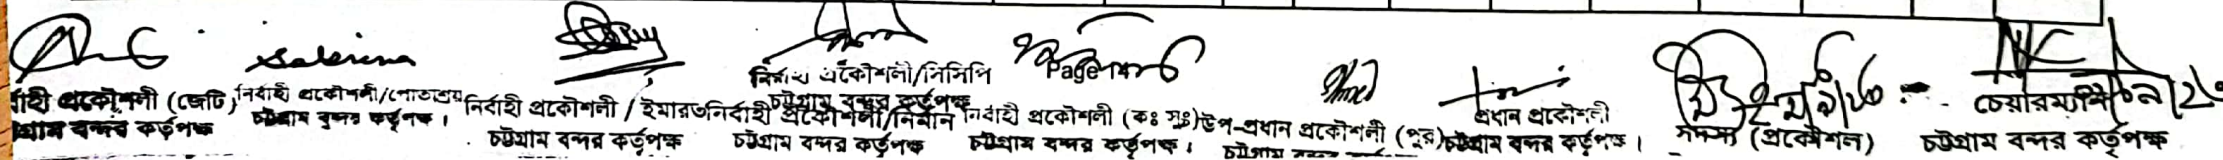 Sabrina
নির্বাহী প্রকৌশলী/সিসিপি
চট্টগ্রাম বন্দর কর্তৃপক্ষ
Page
নির্বাহী প্রকৌশলী (জেটি)
চট্টগ্রাম বন্দর কর্তৃপক্ষ
নির্বাহী প্রকৌশলী/পোতাশ্রয়
চট্টগ্রাম বন্দর কর্তৃপক্ষ।
নির্বাহী প্রকৌশলী / ইমারত
চট্টগ্রাম বন্দর কর্তৃপক্ষ
নির্বাহী প্রকৌশলী/নির্মান
চট্টগ্রাম বন্দর কর্তৃপক্ষ
নির্বাহী প্রকৌশলী (কঃ সুঃ)
চট্টগ্রাম বন্দর কর্তৃপক্ষ।
উপ-প্রধান প্রকৌশলী (পুর)
চট্টগ্রাম বন্দর
প্রধান প্রকৌশলী
চট্টগ্রাম বন্দর কর্তৃপক্ষ।
সদস্য (প্রকৌশল)
চেয়ারম্যান
চট্টগ্রাম বন্দর কর্তৃপক্ষ